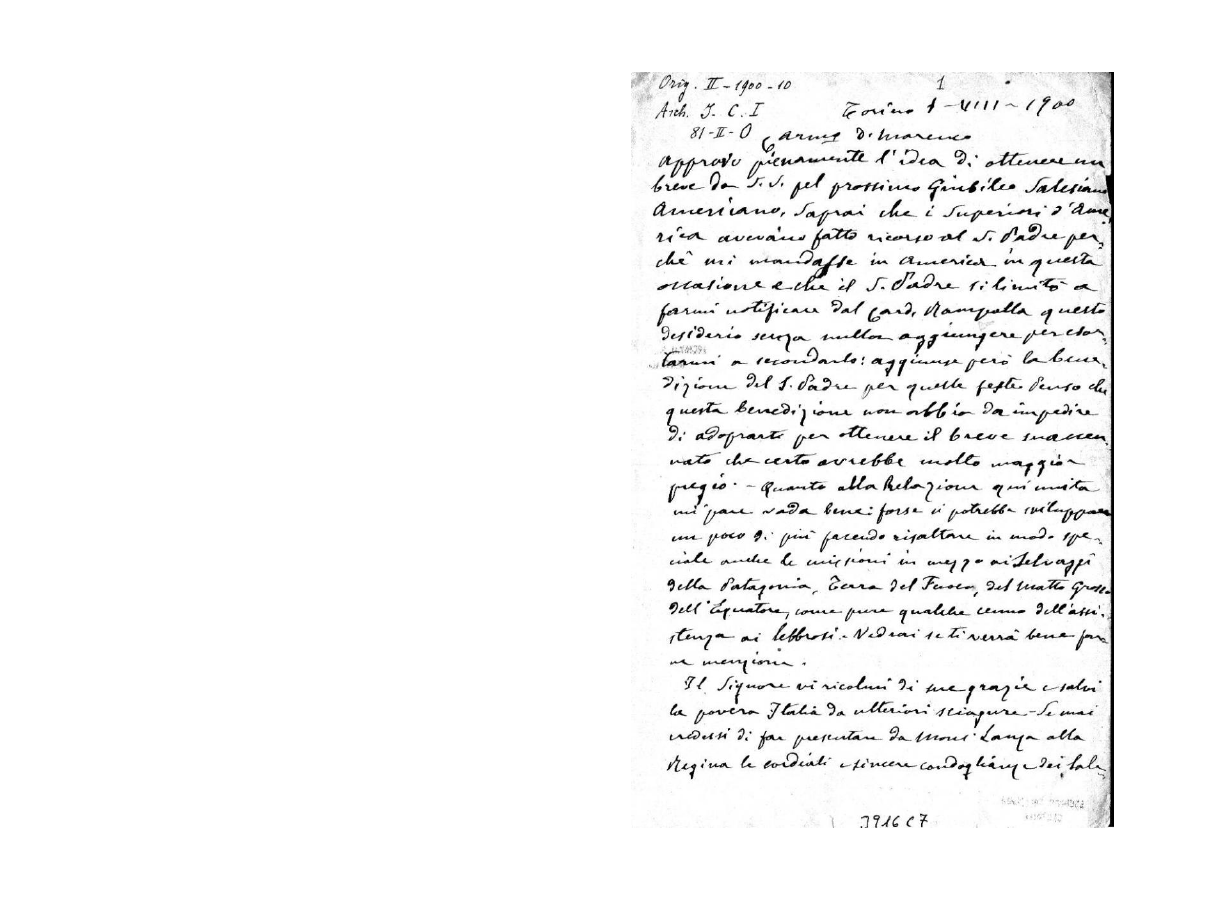 Orig. II - 1900 - 10
1
Arch. I. C. I
Torino 1 - VIII - 1900
81-II-O
Carmo D. Marenco
Approvo pienamente l'idea di ottenere un
breve da S. S. pel prossimo Giubileo Salesiano
Americano. Saprai che i Superiori d'Ame-
rica avevano fatto ricorso al S. Padre per-
chè mi mandasse in America in questa
occasione e che il S. Padre si limitò a
farmi notificare dal Card. Rampolla questo
desiderio senza nulla aggiungere per esor-
tarmi a secondarlo: aggiunse però la bene-
dizione del S. Padre per queste feste. Penso che
questa benedizione non abbia da impedire
di adoprarti per ottenere il breve suaccen-
nato che certo avrebbe molto maggior
pregio. - Quanto alla Relazione qui unita
mi pare vada bene: forse si potrebbe sviluppare
un poco di più facendo risaltare in modo spe-
ciale anche le missioni in mezzo ai Selvaggi
della Patagonia, Terra del Fuoco, del Matto Grosso
dell'Equatore, come pure qualche cenno dell'assi-
stenza ai lebbrosi. - Vedrai se ti verrà bene far
ne menzione.
Il Signore vi ricolmi di sue grazie e salvi
la povera Italia da ulteriori sciagure - Se mai
credessi di far presentare da Mons. Lanza alla
Regina le cordiali e sincere condoglianze dei Sale-
3916 C7